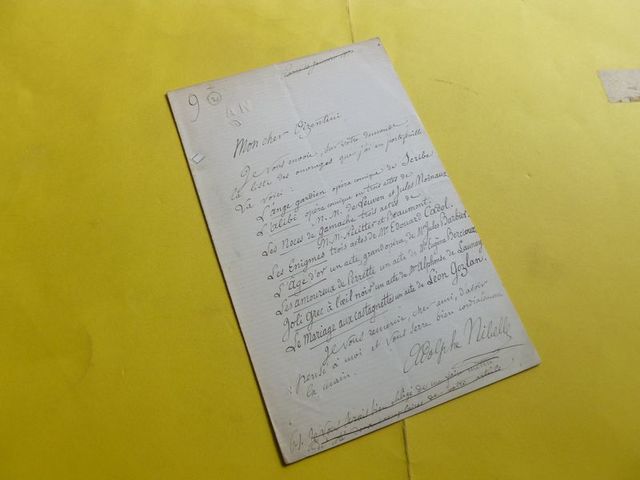 9
AN
Mon cher
Je vous envoie, sur votre demande,
la liste des ouvrages que j'ai en portefeuille.
La voici :
L'Ange gardien opéra comique de Scribe
L'alibi opéra comique en trois actes de
M.M. de Leuwen et Jules Moinaux
Les Noces de Gamache trois actes de
M.M. Nuitter et Beaumont.
Les Enigmes trois actes de Mr Edouard Cadol.
L'Age d'or un acte, grand opéra, de Mr Jules Barbier.
Les amoureux de Perrette un acte de Mr Eugène Bercioux
Joli Grec à l'œil noir un acte de Mr Alphonse de Launay
Le Mariage aux castagnettes un acte de Léon Gozlan.
Je vous remercie, cher ami, d'avoir
pensé à moi et vous serre bien cordialement
la main.
Adolphe Nibelle
Je vous serais bien obligé de
exemplaires de votre article